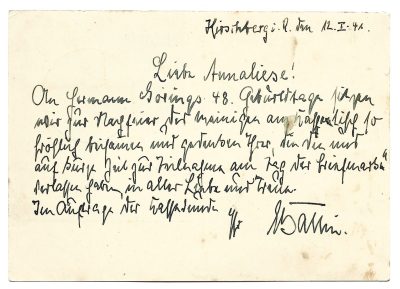 Hirschberg i. R. den 12. I. 41.
Liebe Annaliese!
An Hermann Görings 48. Geburtstage sitzen
wir zur Nachfeier, der am Kaffeetisch so
fröhlich beisammen und gedenken Ihrer, die Sie uns
auf kurze Zeit zur Teilnahme am "Tag der Briefmarke"
verlassen haben, in aller Liebe und Treue.
Im Auftrage der
Ihr